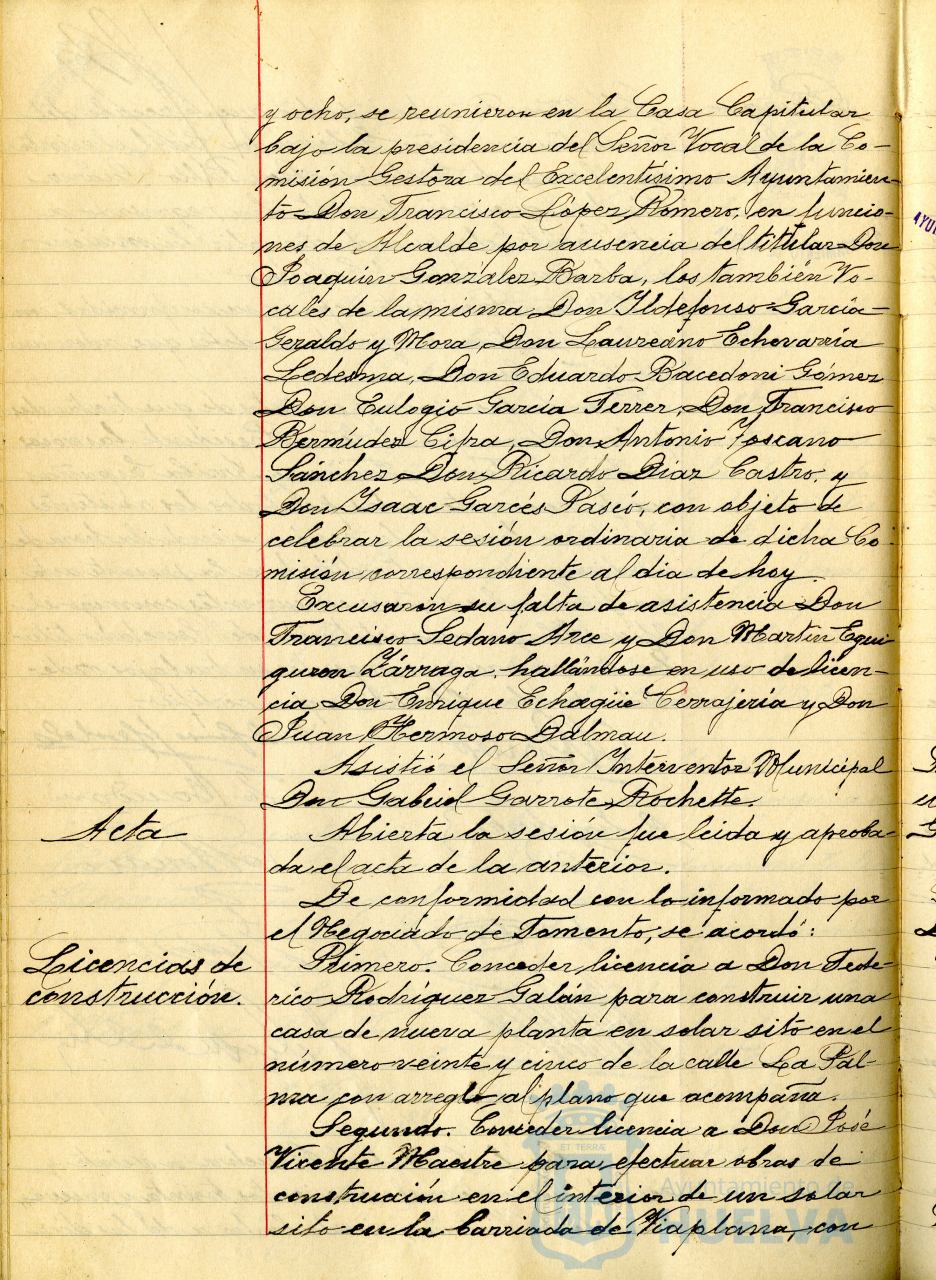 y ocho, se reunieron en la Casa Capitular
bajo la presidencia del Señor Vocal de la Co-
misión Gestora del Excelentísimo Ayuntamien-
to Don Francisco López Romero, en funcio-
nes de Alcalde por ausencia del titular Don
Joaquín González Barba, los también Vo-
cales de la misma Don Ildefonso García-
Geraldo y Mora, Don Laureano Echevarría
Ledesma, Don Eduardo Bacedoni Gómez
Don Eulogio García Ferrer, Don Francisco
Bermúdez Cifra, Don Antonio Toscano
Sánchez Don Ricardo Díaz Castro, y
Don Isaac Garcés Pascó, con objeto de
celebrar la sesión ordinaria de dicha Co-
misión correspondiente al día de hoy.
Excusaron su falta de asistencia Don
Francisco Sedano Arce y Don Martín Egui
guren Zárraga, hallándose en uso de licen-
cia Don Enrique Echagüe Cerrajería y Don
Juan Hermoso Dalmau.
Asistió el Señor Interventor Municipal
Don Gabriel Garrote Rochette.
Acta
Abierta la sesión fue leída y aproba-
da el acta de la anterior.
De conformidad con lo informado por
el Negociado de Fomento, se acordó:
Licencias de
construcción.
Primero. Conceder licencia a Don Fede-
rico Rodríguez Galán para construir una
casa de nueva planta en solar sito en el
número veinte y cinco de la calle La Pal-
ma con arreglo al plano que acompaña.
Segundo. Conceder licencia a Don José
Vicente Maestre para efectuar obras de
construcción en el interior de un solar
sito en la barriada de Viaplana, con
ET TERRÆ
Ayuntamiento de
HUELVA